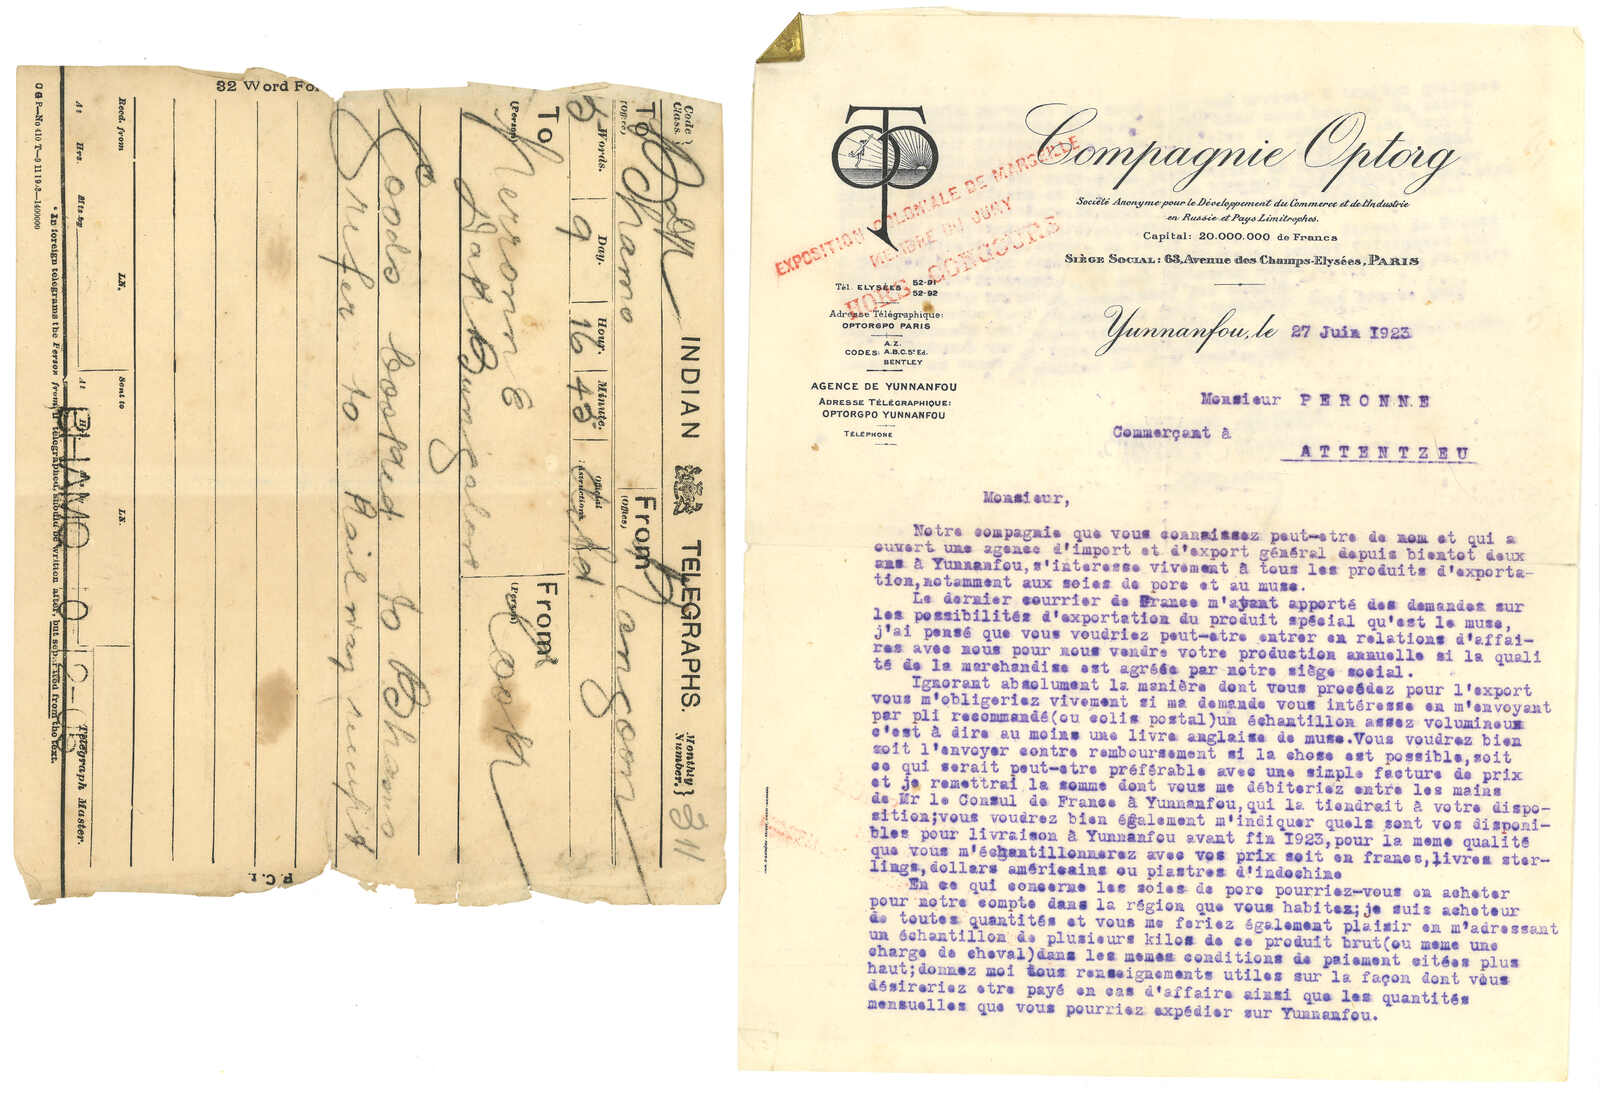 INDIAN TELEGRAPHS.
Code Class.
Monthly Number.} 311
To (Office) Bhamo
From (Office) Rangoon
Words. Day. Hour. Minute.
9 16 45
Official Instructions
To (Person) Perronne
Dak Bungalow
From (Person) Cook
Goods booked to Bhamo
refer to Railway receipt
32 Word For
P.C.I.
Recd. from
LN.
Sent to
LN.
At Hrs. Mts by
At Hrs.
Telegraph Master.
BHAMO
* In foreign telegrams the Person from, if telegraphed, should be written after, but separated from the text.
Compagnie Optorg
Société Anonyme pour le Développement du Commerce et de l'Industrie
en Russie et Pays Limitrophes.
Capital: 20.000.000 de Francs
SIÈGE SOCIAL: 63, Avenue des Champs-Elysées, PARIS
EXPOSITION COLONIALE DE MARSEILLE
MEMBRE DU JURY
HORS CONCOURS
Tél. ELYSÉES 52-91
52-92
Adresse Télégraphique:
OPTORGPO PARIS
CODES: A.Z.
A.B.C. 5e Ed.
BENTLEY
AGENCE DE YUNNANFOU
ADRESSE TÉLÉGRAPHIQUE:
OPTORGPO YUNNANFOU
TÉLÉPHONE
Yunnanfou, le 27 Juin 1923
Monsieur PERONNE
Commerçant à
ATTENTZEU
Monsieur,
Notre compagnie que vous connaissez peut-etre de nom et qui a
ouvert une agence d'import et d'export général depuis bientot deux
ans à Yunnanfou, s'interesse vivement à tous les produits d'exporta-
tion, notamment aux soies de porc et au musc.
Le dernier courrier de France m'ayant apporté des demandes sur
les possibilités d'exportation du produit spécial qu'est le musc,
j'ai pensé que vous voudriez peut-etre entrer en relations d'affai-
res avec nous pour nous vendre votre production annuelle si la quali
té de la marchandise est agréée par notre siège social.
Ignorant absolument la manière dont vous procédez pour l'export
vous m'obligeriez vivement si ma demande vous intéresse en m'envoyant
par pli recommandé(ou colis postal)un échantillon assez volumineux
c'est à dire au moins une livre anglaise de musc.Vous voudrez bien
soit l'envoyer contre remboursement si la chose est possible,soit
ce qui serait peut-etre préférable avec une simple facture de prix
et je remettrai la somme dont vous me débiteriez entre les mains
de Mr le Consul de France à Yunnanfou,qui la tiendrait à votre dispo-
sition;vous voudrez bien également m'indiquer quels sont vos disponi-
bles pour livraison à Yunnanfou avant fin 1923,pour la meme qualité
que vous m'échantillonnerez avec vos prix soit en francs,livres ster-
lings,dollars américains ou piastres d'indochine
En ce qui concerne les soies de porc pourriez-vous en acheter
pour notre compte dans la région que vous habitez;je suis acheteur
de toutes quantités et vous me feriez également plaisir en m'adressant
un échantillon de plusieurs kilos de ce produit brut(ou meme une
charge de cheval)dans les memes conditions de paiement citées plus
haut;donnez moi tous renseignements utiles sur la façon dont vous
désireriez etre payé en cas d'affaire ainsi que les quantités
mensuelles que vous pourriez expédier sur Yunnanfou.